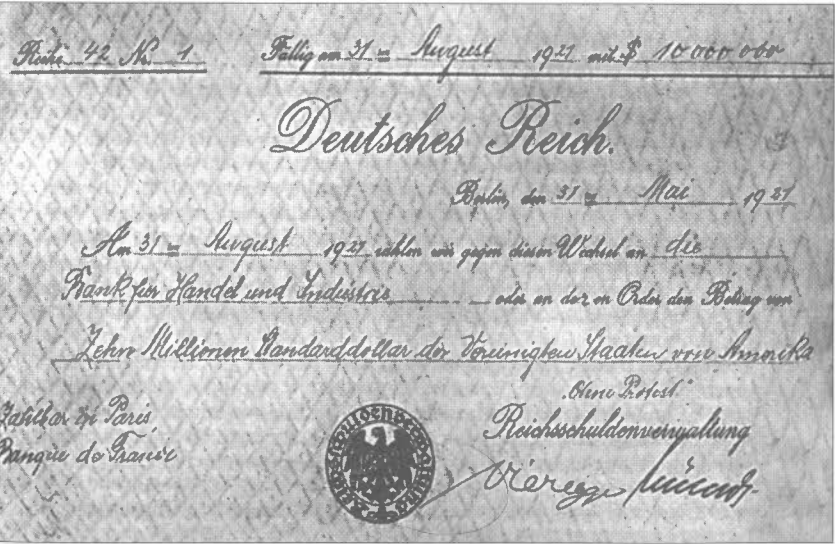 Reihe 42 No. 1
Fällig am 31 August 1921 mit $ 10 000 000
Deutsches Reich.
Berlin, den 31 Mai 1921
Am 31 August 1921 zahlen wir gegen diesen Wechsel an die
Bank für Handel und Industrie oder an deren Order den Betrag von
Zehn Millionen Standarddollar der Vereinigten Staaten von Amerika
„Ohne Protest“
Zahlbar in Paris
Banque de France
Reichsschuldenverwaltung
Reichsschuldenverwaltung